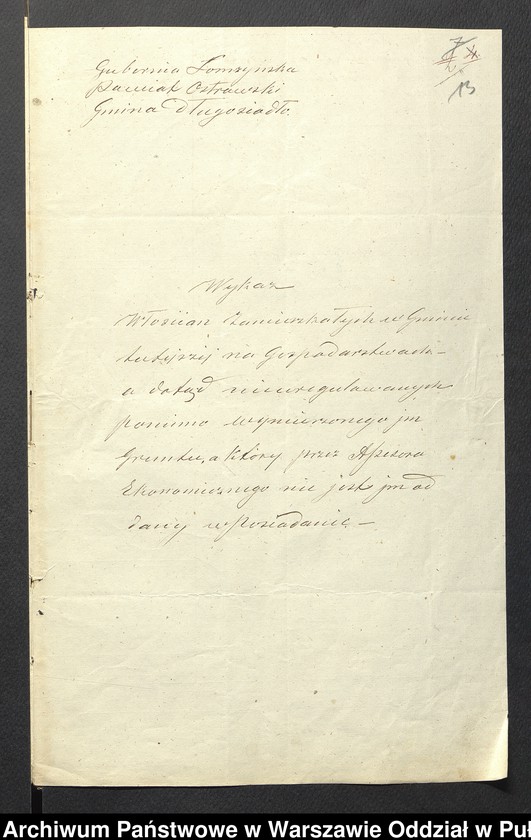 Gubernia Łomzynska
Powiat Ostrowski
Gmina Długosiodło
13
Wykaz
Włościan Zamieszkałych w Gminie
tutejszej na Gospodarstwach
a dotąd nieuregulowanych
pomimo wymierzonego jm
Gruntu, a Który przez Assesora
Ekonomicznego nie jest jm od
dany w Posiadanie –
Archiwum Państwowe w Warszawie Oddział w Puł